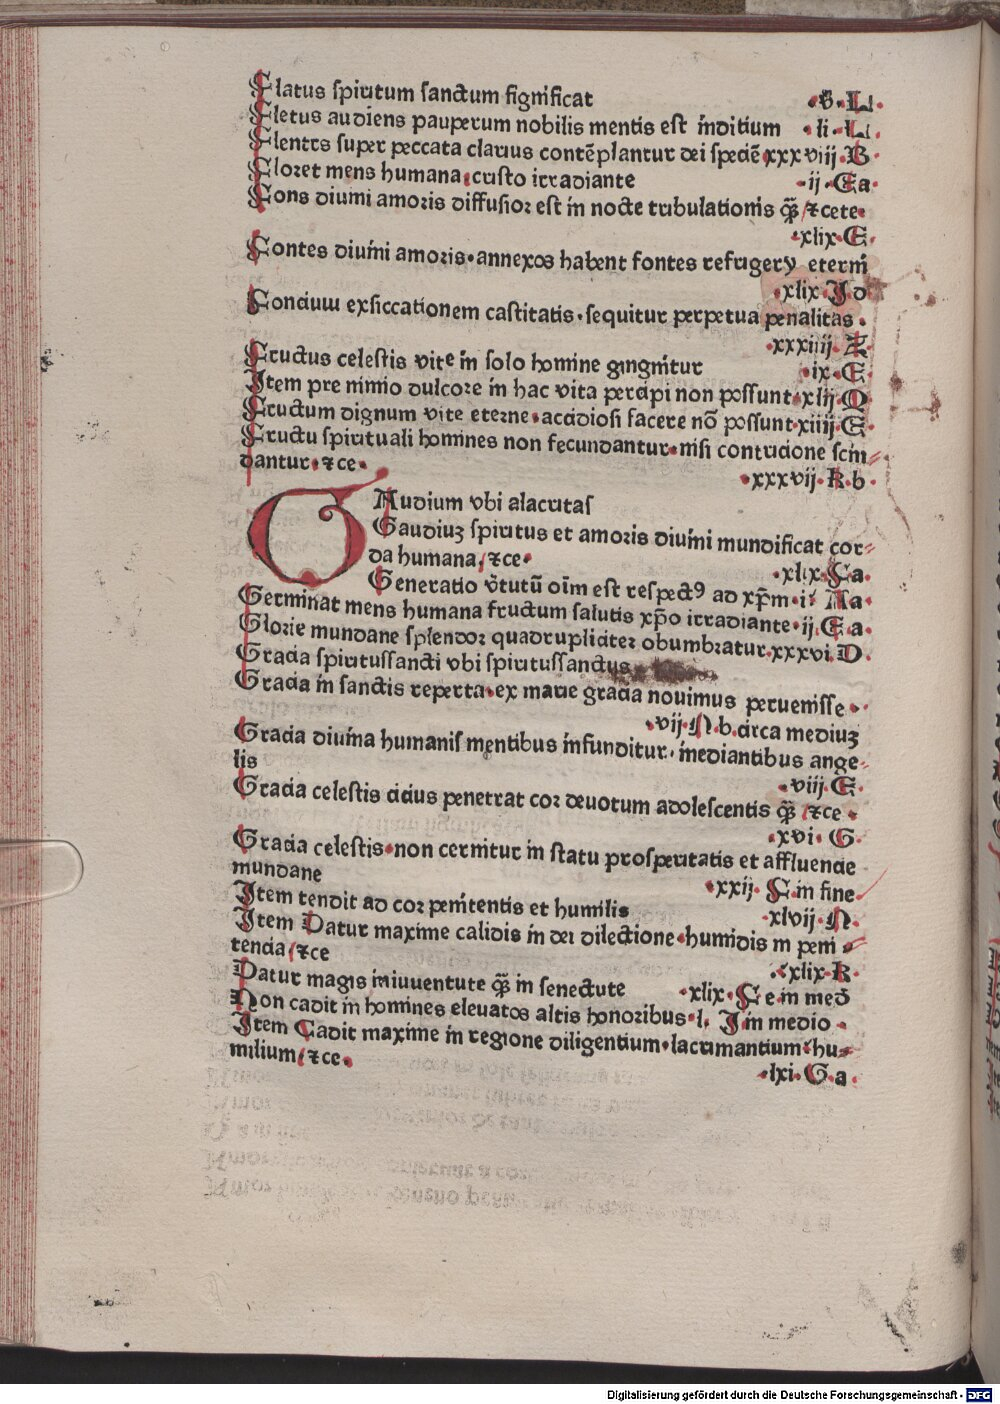 Flatus spiritum sanctum significat ·v̄·L·
Fletus audiens pauperum nobilis mentis est inditium ·li·L·
Flentes super peccata clarius contēplantur dei speciē·xxxviij·B·
Floret mens humana·cristo irradiante ·ij·Ea·
Fons diuini amoris diffusior est in nocte tribulationis q̄ꝫ /⁊cete·
·xlix·E·
Fontes diuini amoris·annexos habent fontes refrigery eterni
·xlix·J d·
Fonciuū exsiccationem castitatis·sequitur perpetua penalitas·
·xxxiiij·A·
Fructus celestis vite in solo homine gingnitur ·ix·E·
Item pre nimio dulcore in hac vita percipi non possunt·xlij·Q
Fructum dignum vite eterne·accidiosi facere nō possunt·xiiij·E·
Fructu spirituali homines non fecundantur·nisi contricione scin⸗
dantur·⁊ce· ·xxxvij·R·b·
GAudium vbi alacritas
Gaudiuꝫ spiritus et amoris diuini mundificat cor⸗
da humana/⁊ce· ·xlix·Fa·
Generatio v̄tutū oīm est respectꝰ ad xp̄m·i·Aa·
Germinat mens humana fructum salutis xp̄o irradiante·ij·Ea·
Glorie mundane splendor quadrupliciter obumbratur·xxxvi·D·
Gracia spiritussancti vbi spiritussanctus
Gracia in sanctis reperta·ex marie gracia nouimus peruenisse·
·vij·N·b·circa mediuꝫ
Gracia diuina humanis mentibus infunditur·mediantibus ange⸗
lis ·viij·E·
Gracia celestis cicius penetrat cor deuotum adolescentis q̄ꝫ /⁊ce·
·xvi·G·
Gracia celestis·non cernitur in statu prosperitatis et affluencie
mundane ·xxij·F·in fine·
Item tendit ad cor penitentis et humilis ·xlvij·N·
Item Datur maxime calidis in dei dilectione·humidis in peni⸗
tencia/⁊ce ·xlix·R·
Datur magis iniuuentute q̄ꝫ in senectute ·xlix·F e·in med̄
Non cadit in homines eleuatos altis honoribus·l· J in medio·
Item Cadit maxime in regione diligentium·lacrimantium·hu⸗
milium/⁊ce· ·lxi·G·a·
Digitalisierung gefördert durch die Deutsche Forschungsgemeinschaft - DFG